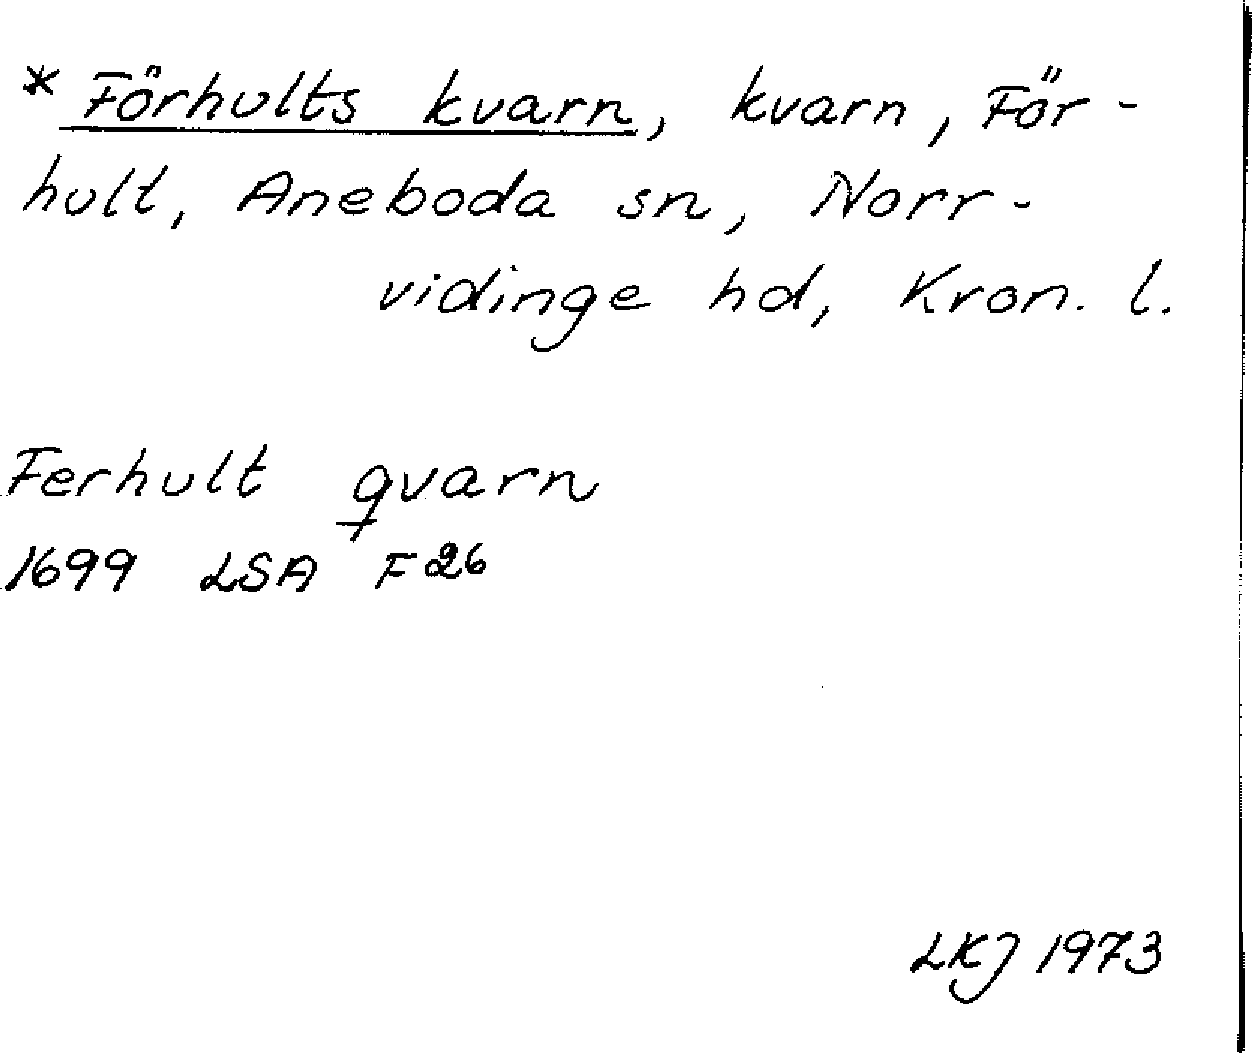 * Förhults kvarn, kvarn, För-
hult, Aneboda sn, Norr-
vidinge hd, Kron. l.
Ferhult qvarn
1699 LSA F26
LKJ 1973